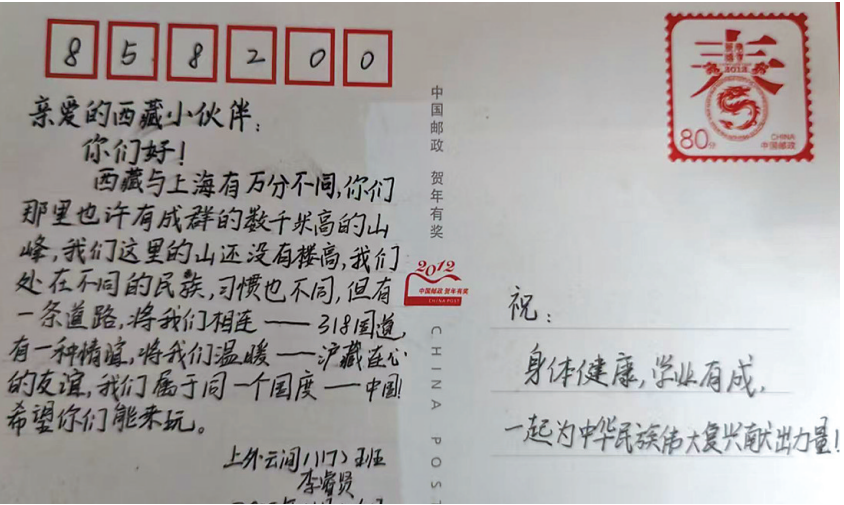 858200
亲爱的西藏小伙伴：
你们好！
西藏与上海有万分不同，你们
那里也许有成群的数千米高的山
峰，我们这里的山还没有楼高，我们
处在不同的民族，习惯也不同，但有
一条道路，将我们相连——318国道，
有一种情谊，将我们温暖——沪藏连心
的友谊，我们属于同一个国度——中国！
希望你们能来玩。
上外云间八(17)班
李睿贤
中国邮政 贺年有奖
2012
中国邮政 贺年有奖
CHINA POST
CHINA POST
2012
80分
CHINA
中国邮政
祝：
身体健康，学业有成，
一起为中华民族伟大复兴献出力量！